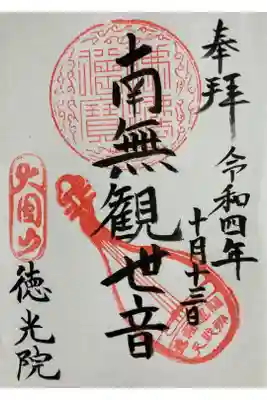 奉拝
令和四年
十月十三日
南無観世音
大圓山
徳光院